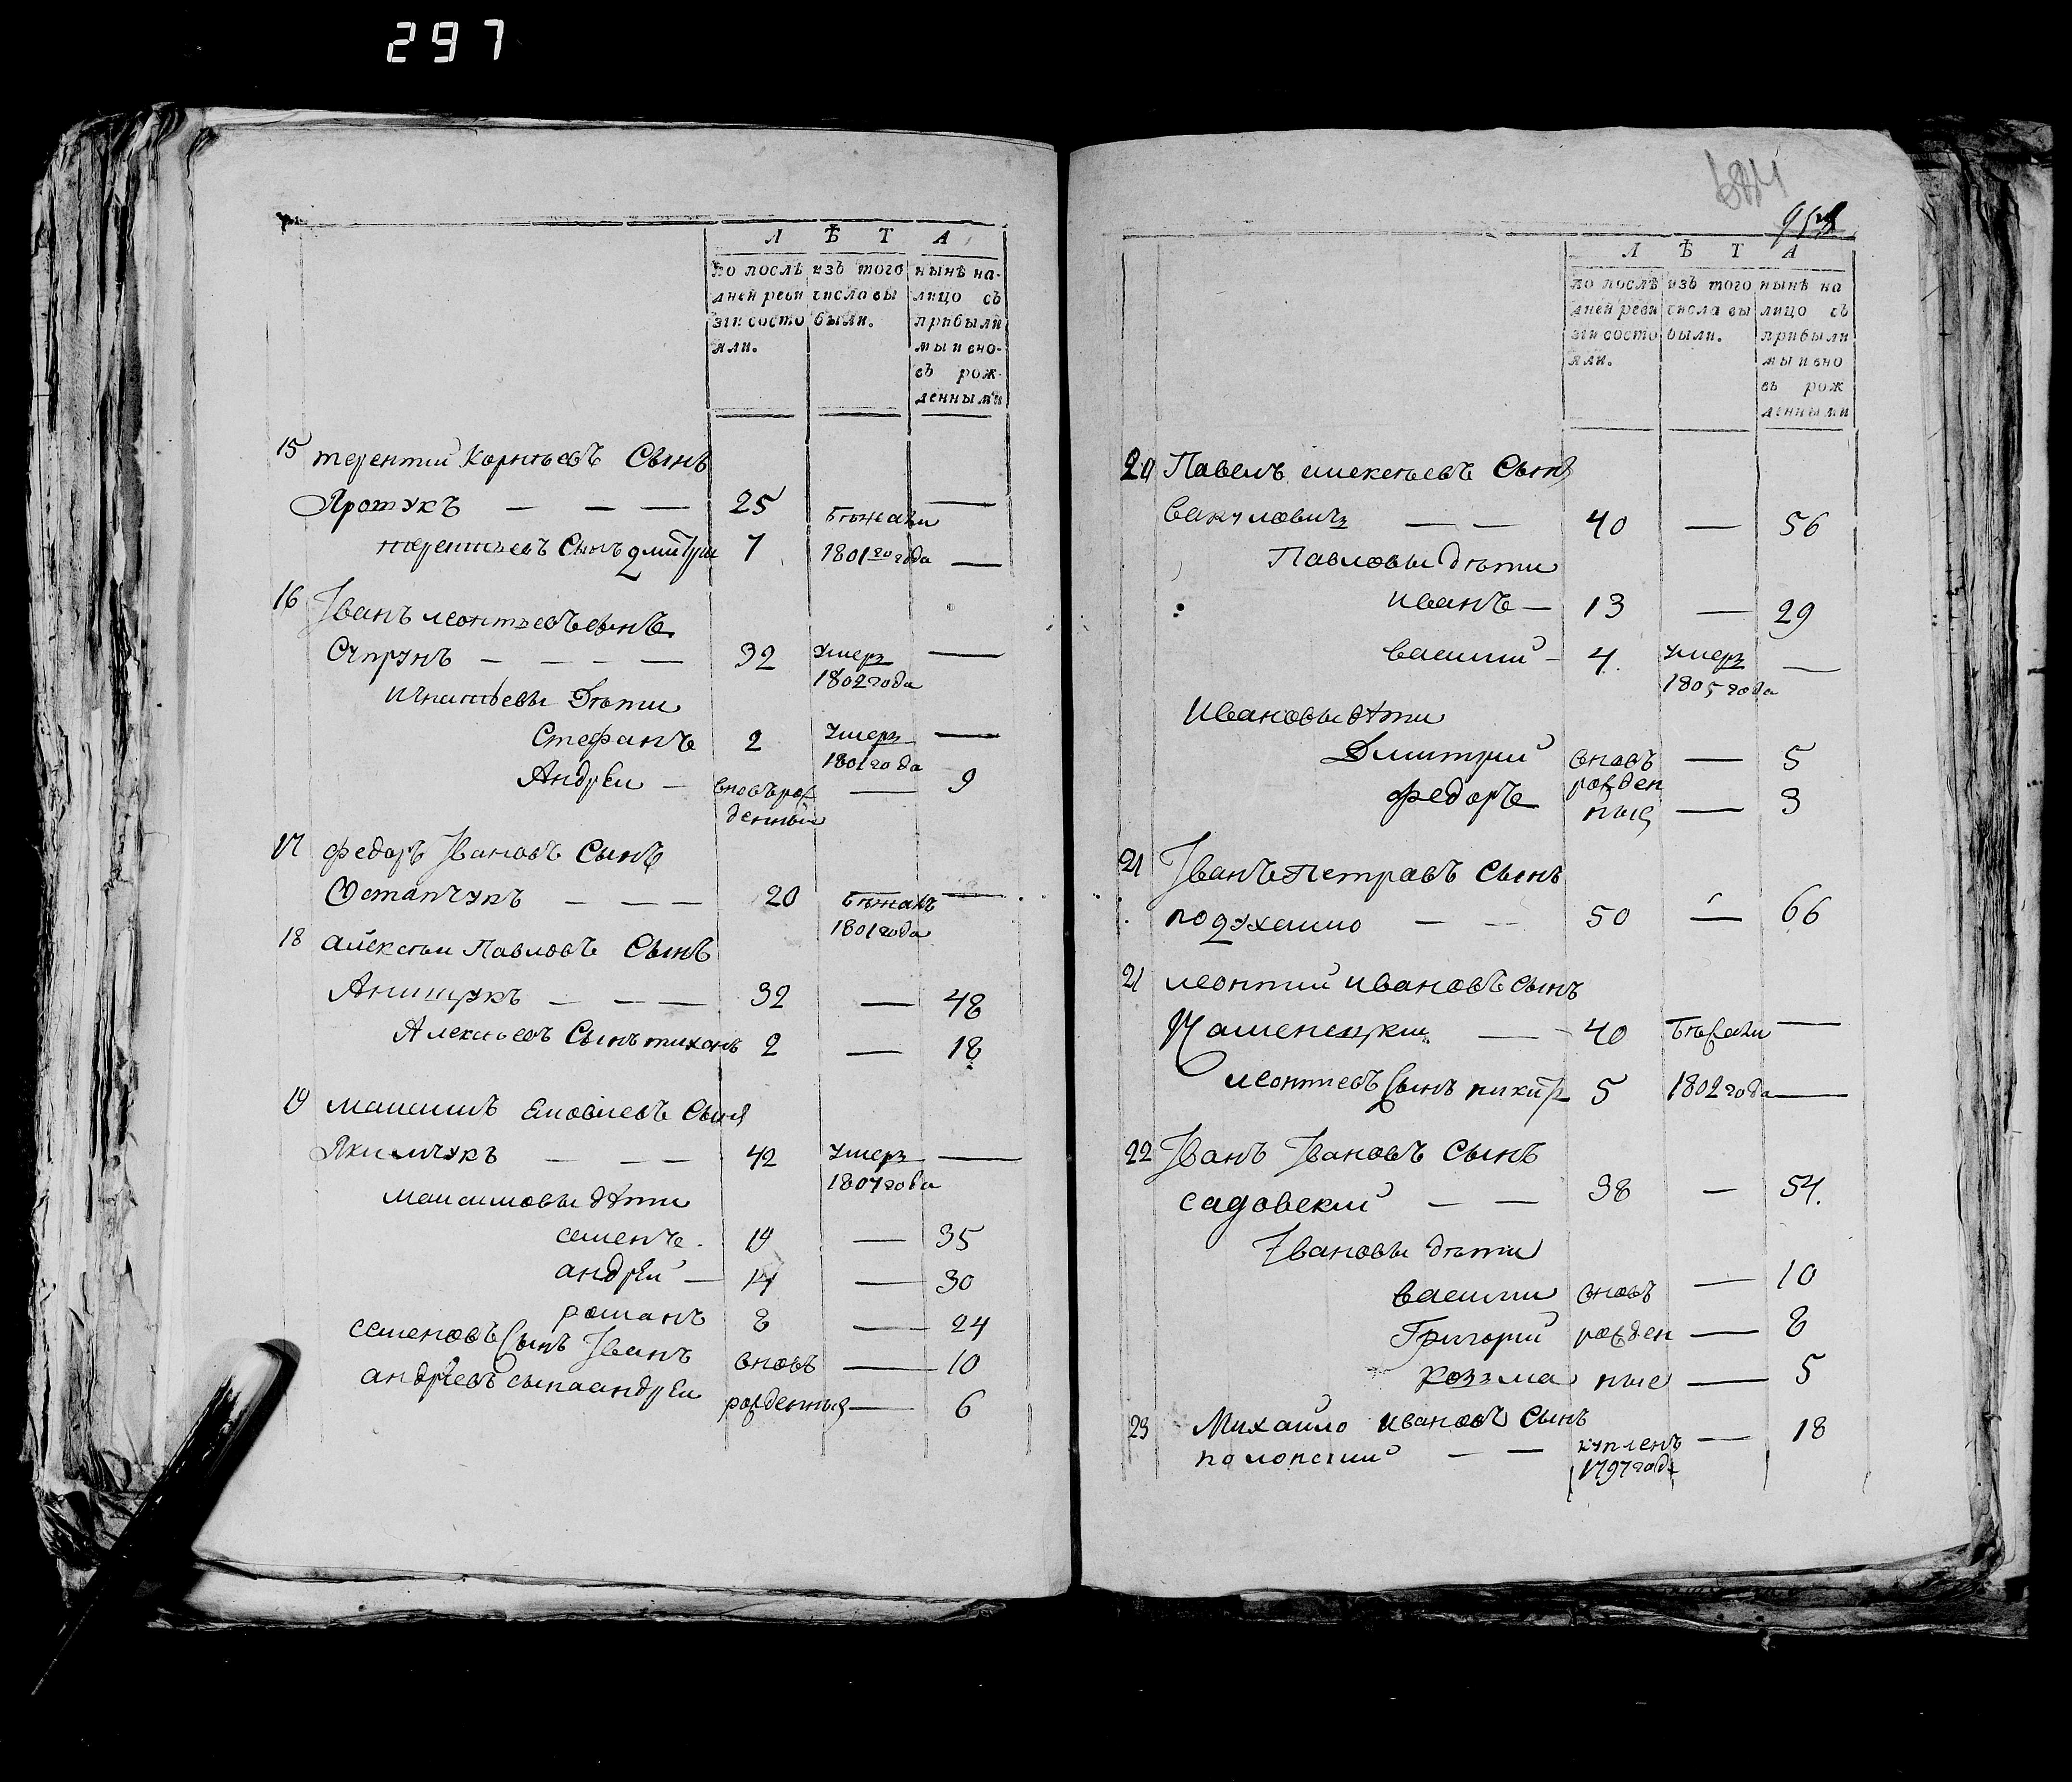 297
Л Ѣ Т А
по послѣ дней реви зіи состо яли.
изъ того числа вы были.
нынѣ на лицо съ прибыли мы и вно въ рож денными
15 терентий Корнѣевъ Сынъ
Яротукъ — — — 25 бѣжали —
терентьевъ Сынъ дмитри 7 1801го года —
16 Іванъ леонтьевъ сынъ
Супрунъ — — — — 32 умеръ 1802 года —
игнатьевы Дѣти
Стефанъ 2 умеръ 1801 года —
Андрей — вновь рож денный — 9
17 федоръ Івановъ Сынъ
Остапчукъ — — — 20 бѣжалъ 1801 года —
18 алексѣи Павловъ Сынъ
Анищукъ — — — 32 — 48
Алексѣевъ Сынъ тихонъ 2 — 18
19 максимъ Яковлевъ Сынъ
Якимчукъ — — — 42 умеръ 1807 года —
максимовы дѣти
семенъ 19 — 35
андрей — 14 — 30
романъ 8 — 24
семеновъ Сынъ Іванъ вновь — 10
андреевъ сына андреи рожденныя — 6
Л Ѣ Т А
по послѣ дней реви зіи состо яли.
изъ того числа вы были.
нынѣ на лицо съ прибыли мы и вно въ рож денными
20 Павелъ алексѣевъ Сынъ
Вакуловичъ — — 40 — 56
Павловы дѣти
иванъ — 13 — 29
василий — 4 умеръ 1805 года —
Ивановы дѣти
Дмитрий вновь — 5
федоръ рожден ныя — 3
21 Іванъ Петровъ Сынъ
подухайло — — 50 — 66
21 леонтий ивановъ сынъ
Каменецкии — 40 бѣжали —
леонтиевъ Сынъ никит 5 1802 года —
22 Іванъ Івановъ Сынъ
садовский — — 38 — 54.
Івановы дѣти
василии вновь — 10
Григорий рожден — 8
козма ные — 5
23 Михайло ивановъ Сынъ
полонский — — купленъ 1797 года — 18